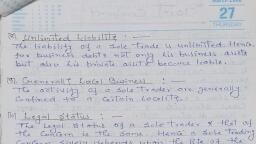 27
THURSDAY
Unlimited Liability : —
The liability of a Sole Trade is unlimited. Hence
for business debts not only his business assets
but also his private assets become liable.
Generally Local Business : —
The activity of a Sole Trader are generally
Confined to a Certain locality.
Legal Status : —
The Legal Status of a Sole trader & that of
the Concern is the Same. Hence a Sole Trading
Concern depends upon the life of the